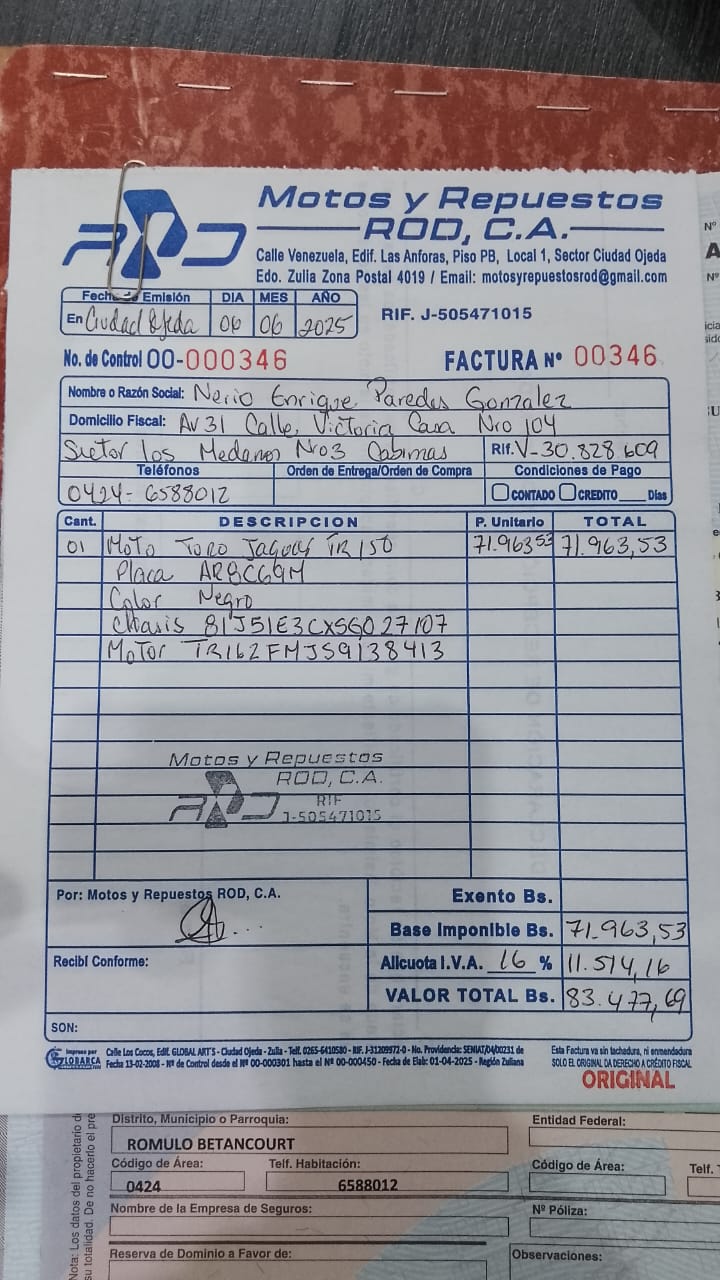 Motos y Repuestos
ROD, C.A.
Calle Venezuela, Edif. Las Anforas, Piso PB, Local 1, Sector Ciudad Ojeda
Edo. Zulia Zona Postal 4019 / Email: motosyrepuestosrod@gmail.com
Fecha de Emisión DIA MES AÑO
En Ciudad Ojeda 06 06 2025
RIF. J-505471015
No. de Control 00-000346 FACTURA Nº 00346
Nombre o Razón Social: Nerio Enrique Paredes Gonzalez
Domicilio Fiscal: Av 31 Calle, Victoria Casa Nro 104
Sector los Medanos Nro3 Cabimas Rif. V-30.828.609
Teléfonos Orden de Entrega/Orden de Compra Condiciones de Pago
0424-6588012 CONTADO CREDITO ____ Días
Cant. DESCRIPCION P. Unitario TOTAL
01 Moto Toro Jaguar TR150 71.963,53 71.963,53
Placa AR8C69M
Color Negro
Chasis 81J51E3CXSG027107
Motor TR162FMJS9138413
Motos y Repuestos
ROD, C.A.
RIF
J-505471015
Por: Motos y Repuestos ROD, C.A.
Exento Bs.
Base Imponible Bs. 71.963,53
Recibí Conforme:
Alicuota I.V.A. 16 % 11.514,16
VALOR TOTAL Bs. 83.477,69
SON:
Impreso por GLOBARCA Calle Los Cocos, Edif. GLOBAL ART'S - Ciudad Ojeda - Zulia - Telf. 0265-6410580 - RIF. J-31209972-0 - No. Providencia: SENIAT/04/00231 de
Fecha 13-02-2008 - Nº de Control desde el Nº 00-000301 hasta el Nº 00-000450 - Fecha de Elab: 01-04-2025 - Región Zuliana
Esta Factura va sin tachadura, ni enmendadura
SOLO EL ORIGINAL DA DERECHO A CRÉDITO FISCAL
ORIGINAL
Distrito, Municipio o Parroquia: Entidad Federal:
ROMULO BETANCOURT
Código de Área: Telf. Habitación: Código de Área: Telf.
0424 6588012
Nombre de la Empresa de Seguros: Nº Póliza:
Reserva de Dominio a Favor de: Observaciones:
Nota: Los datos del propietario
su totalidad. De no hacerlo el